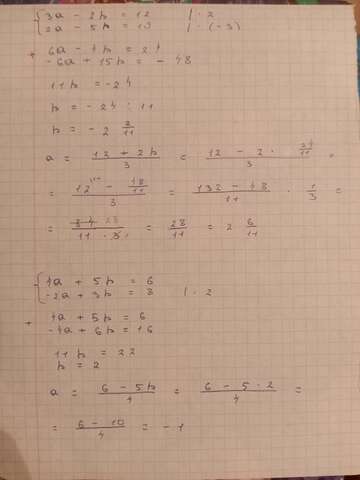 3a - 2p = 12 | · 2
2a - 5p = | · (-3)
+ 6a - 4p = 24
-6a + 15p = -48
11p = -24
p = -24 : 11
p = -2 2/11
a = (12 + 2p)/3 = (12 - 2 · 24/11)/3
= (12 - 48/11)/3 = (132 - 48)/11 · 1/3 =
= 84 28/(11 · 3) = 28/11 = 2 6/11
4a + 5p = 6
-2a + 3p = 8 | · 2
+ 4a + 5p = 6
-4a + 6p = 16
11p = 22
p = 2
a = (6 - 5p)/4 = (6 - 5 · 2)/4 =
= (6 - 10)/4 = -1